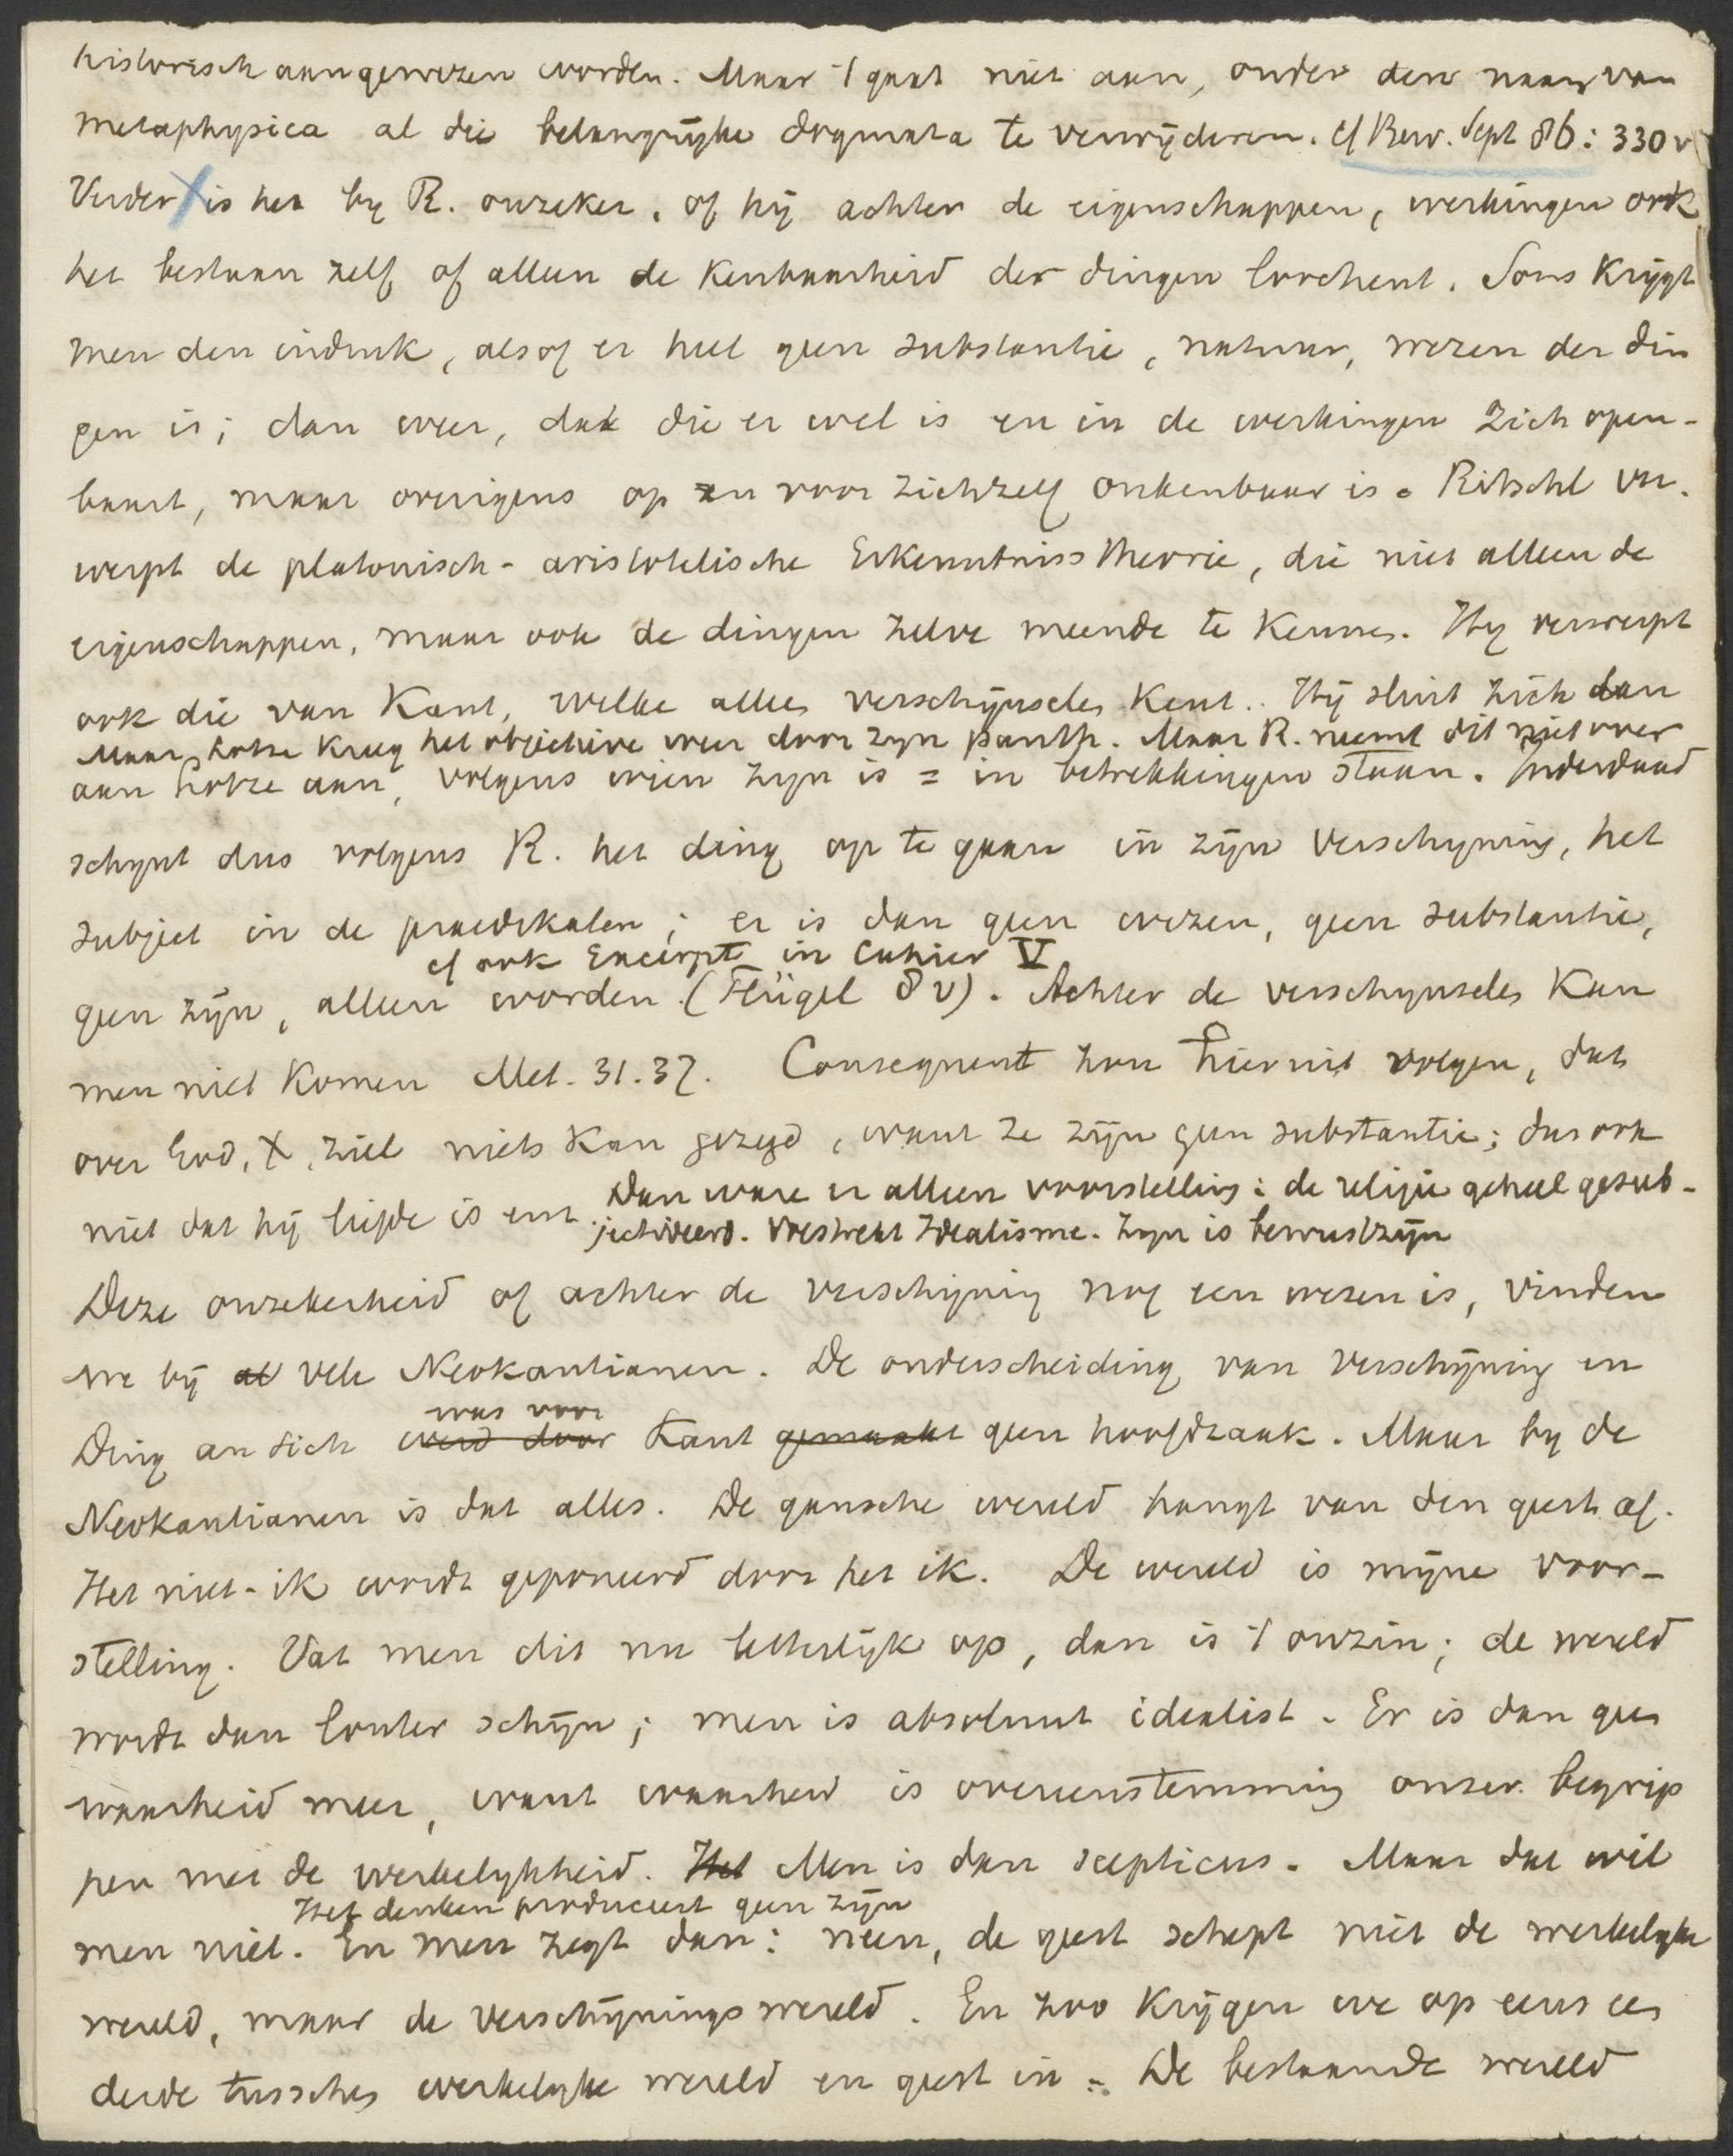 historisch aangewezen worden. Maar 't gaat niet aan, onder den naam van
metaphysica al die belangrijke dogmata te verwijderen. cf Bew. Sept 86: 330 v
Verder is het by R. onzeker, of hij achter de eigenschappen, werkingen ook
het bestaan zelf of alleen de kenbaarheid der dingen loochent. Soms krijgt
men den indruk, alsof er heel geen substantie, natuur, wezen der din
gen is; dan weer, dat die er wel is en in de werkingen zich open-
baart, maar overigens op en voor zichzelf onkenbaar is. Ritschl ver-
werpt de platonisch-aristotelische Erkenntniss theorie, die niet alleen de
eigenschappen, maar ook de dingen zelve meende te kennen. Hij verwerpt
ook die van Kant, welke alleen verschijnselen kent. Hij sluit zich dan
Maar Lotze kreeg het objectieve weer door zyn panth. Maar R. neemt dit niet over
aan Lotze aan, volgens wien zyn is = in betrekkingen staan. Inderdaad
schynt dus volgens R. het ding op te gaan in zijn verschyning, het
subject in de praedikaten; er is dan geen wezen, geen substantie,
cf ook Excerpt in Cahier V
geen zijn, alleen worden. (Flügel 8 v). Achter de verschynselen kan
men niet komen Met. 31. 37. Consequent zou hieruit volgen, dat
over God, X, ziel niets kan gezegd, want ze zijn geen substantie; dus ook
niet dat hij liefde is enz. Dan ware er alleen voorstelling: de religie geheel gesub-
jectiveerd. Volstrekt Idealisme. Zyn is bewustzijn
Deze onzekerheid of achter de verschijning nog een wezen is, vinden
we bij al vele Neokantianen. De onderscheiding van verschijning en
was voor
Ding an sich werd door Kant gemaakt geen hoofdzaak. Maar by de
Neokantianen is dat alles. De gansche wereld hangt van den geest af.
Het niet-ik wordt geponeerd door het ik. De wereld is mijne voor-
stelling. Vat men dit nu letterlijk op, dan is 't onzin; de wereld
wordt dan louter schijn; men is absoluut idealist. Er is dan geen
waarheid meer, want waarheid is overeenstemming onzer begrip
pen met de werkelykheid. Het Men is dan scepticus. Maar dat wil
Het denken produceert geen zijn
men niet. En men zegt dan: neen, de geest schept niet de werkelyke
wereld, maar de verschijningswereld. En zoo krijgen we op eens een
derde tusschen werkelyke wereld en geest in. De bestaande wereld